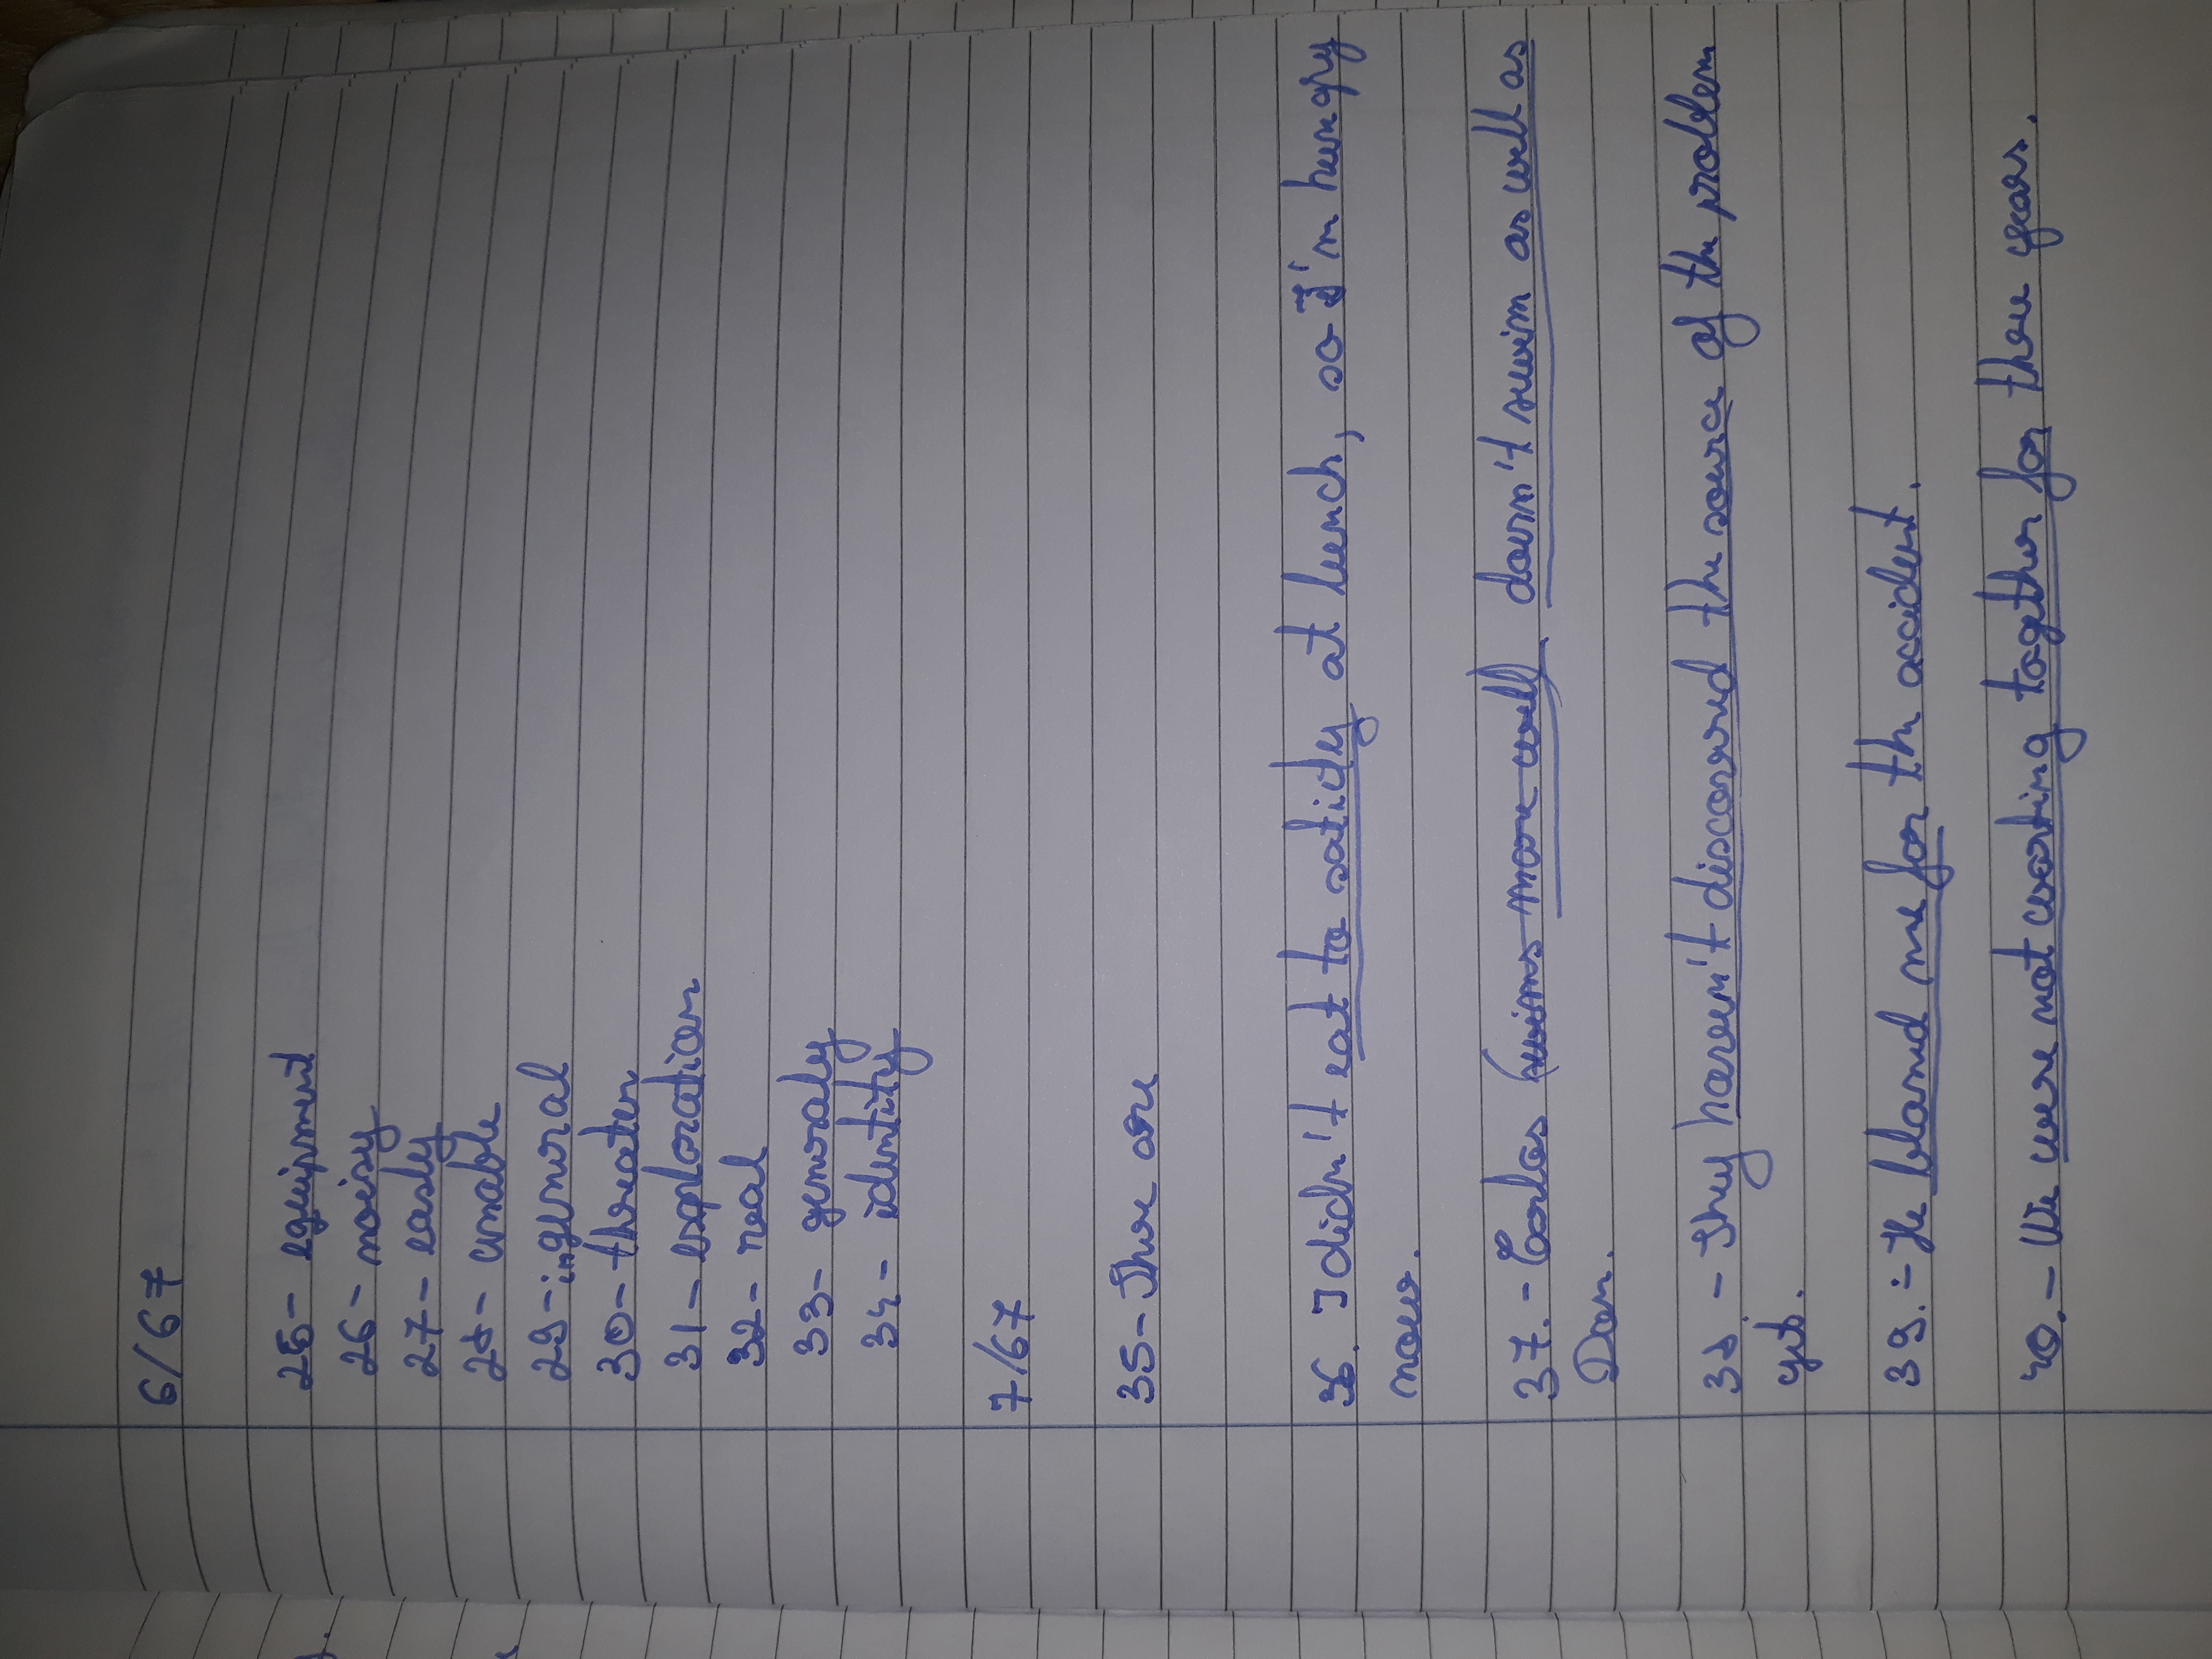 6/67
25- equipment
26- noisy
27- easly
28- unable
29- ingurnral
30- threater
31- exploration
32- real
33- generaly
34- identity
7/67
35- There are
36. I didn't eat to satidy at lunch, so I'm hungry
now.
37.- Carlos swims more well doesn't swim as well as
Dan.
38.- They haven't discovered the source of the problem
yet.
39.- He blamed me for the accident.
40.- We were not working together for three years.